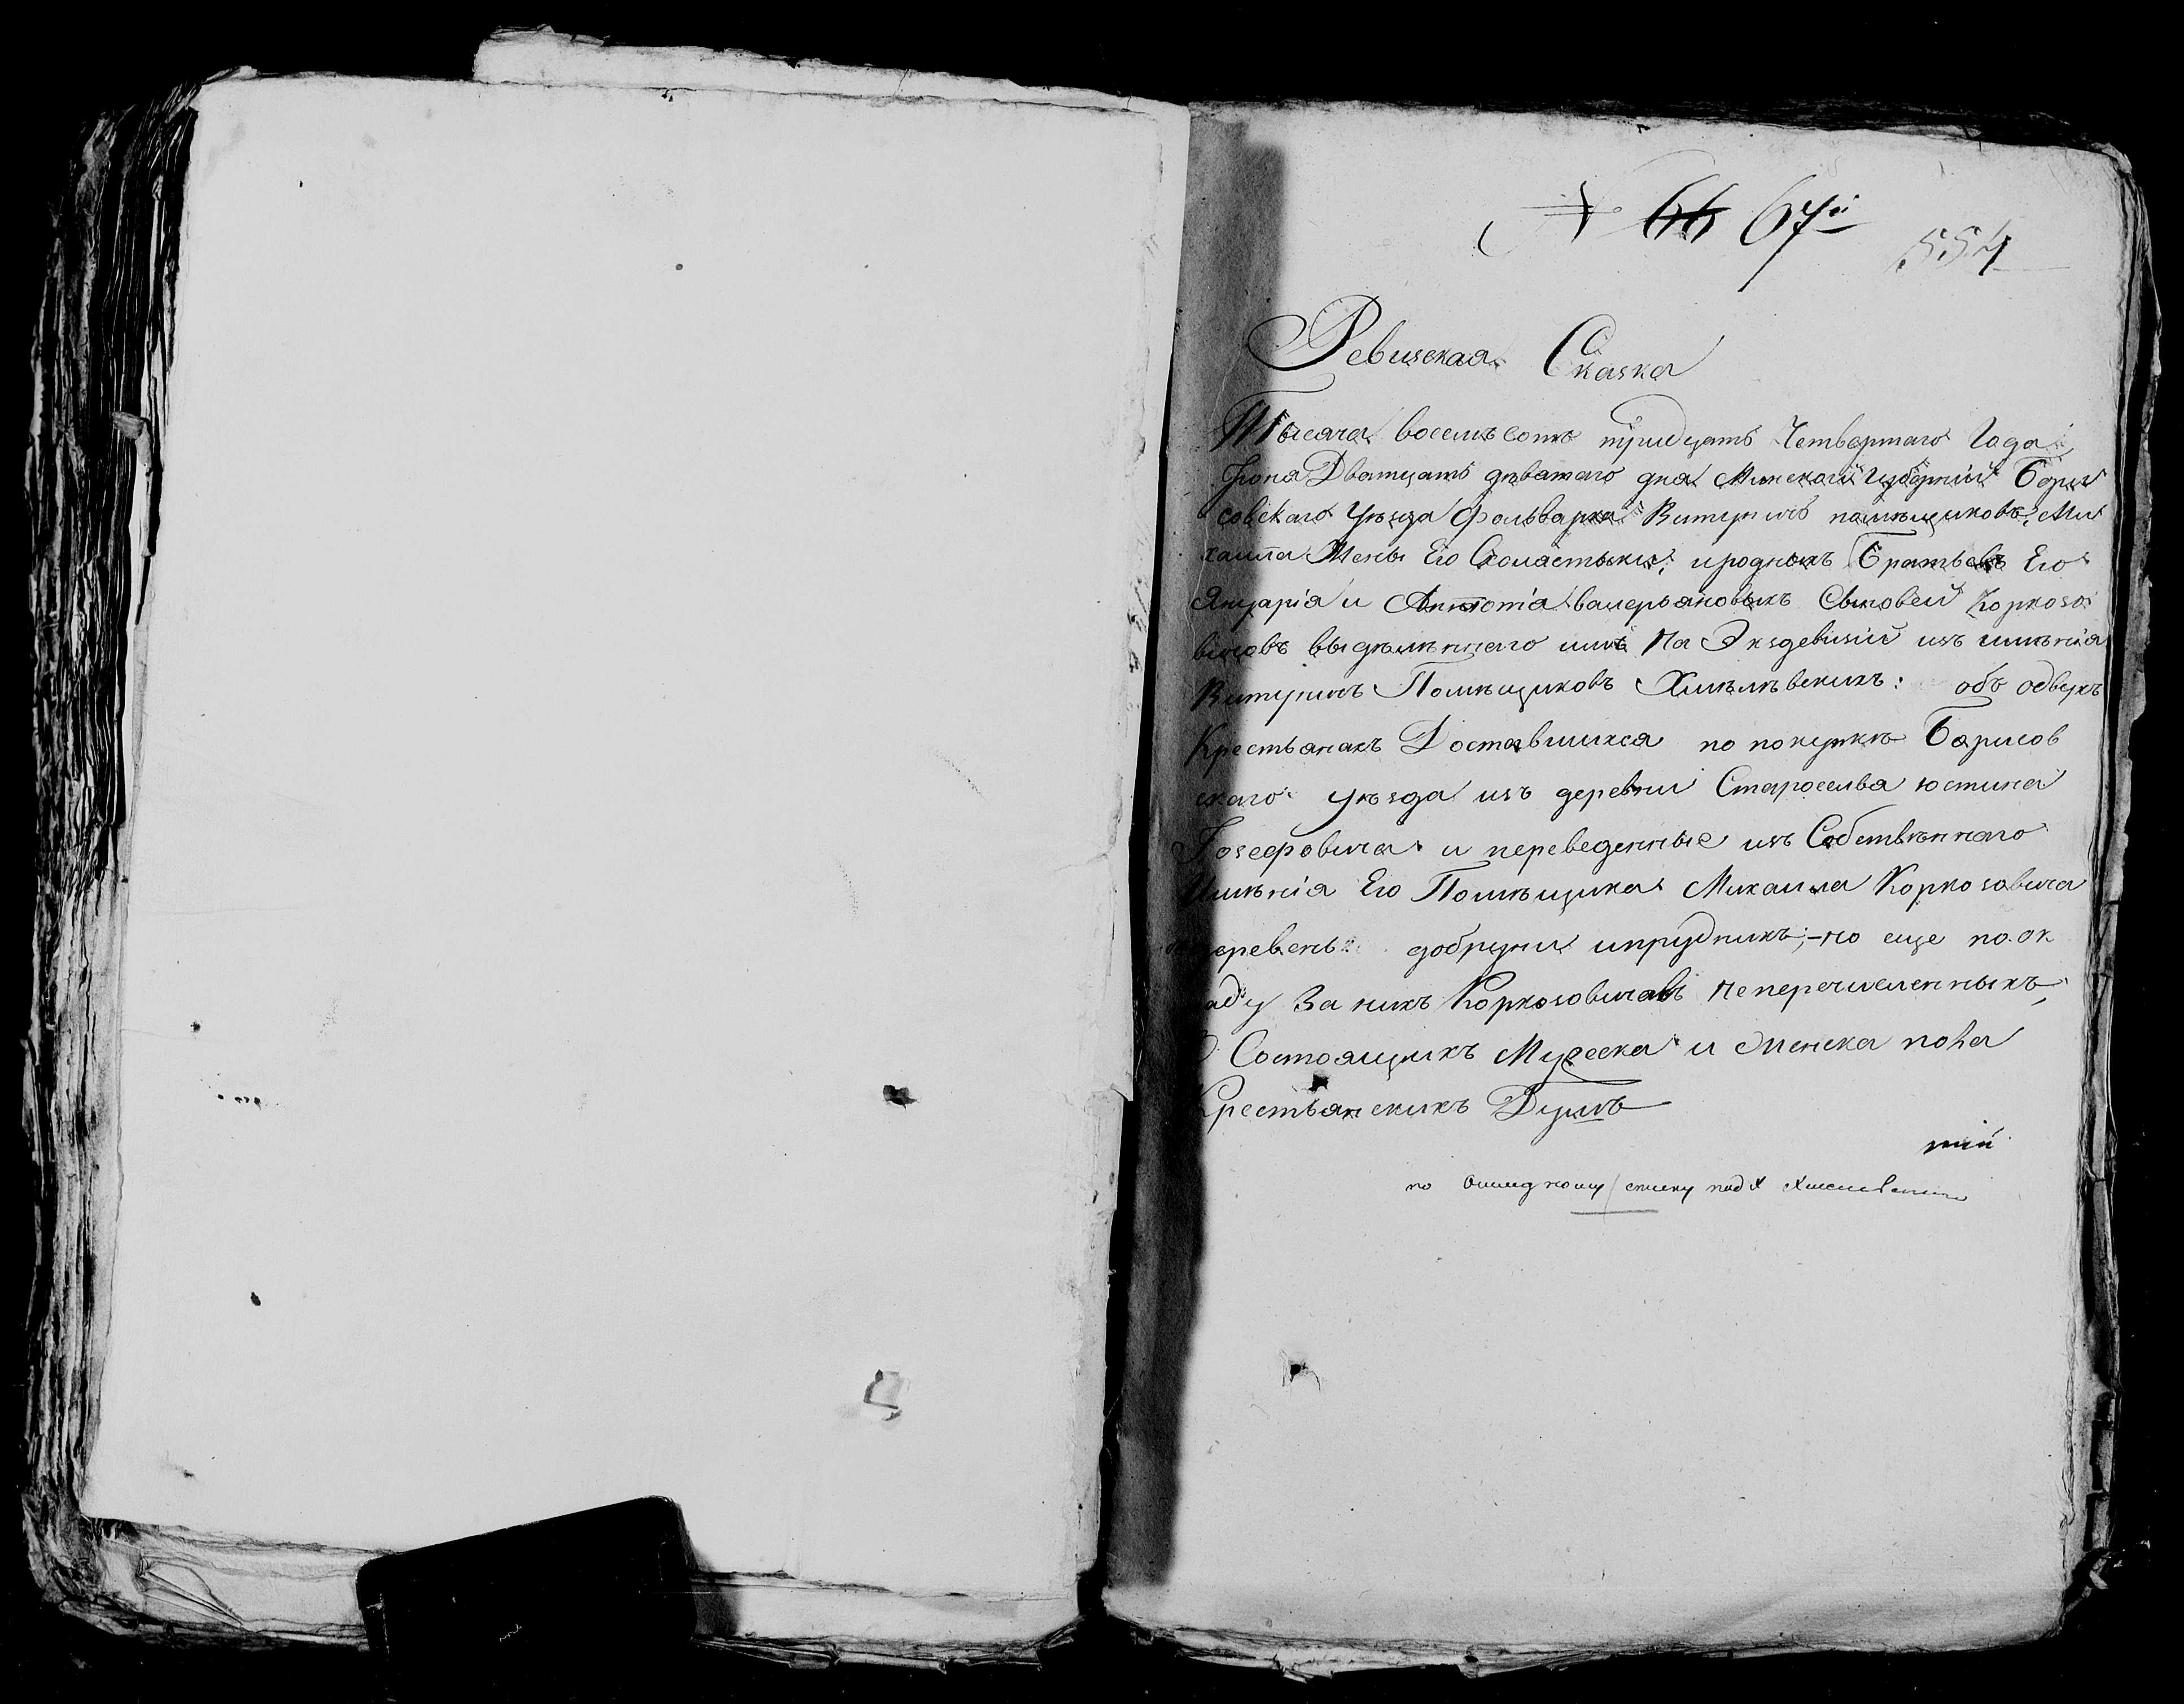 № 66 67й
554
Ревизская Сказка
Тысяча восемъ сотъ тридцать Четвертаго Года
Іюня Дватцать дѣватаго дня Минской Губерніи Бори
совскаго Уѣзда Фольварка Витуничь помѣщиковъ: Ми
хаила Жены Его Схоластыки; и родныхъ Братьевъ Его
Януарія и Антонія валерьяновыхъ Сыновей Коркозо
вичовъ выдѣлѣннаго имъ На Экздевизіи изъ имѣнія
Витуничъ Помѣщиковъ Хмѣлѣвскихъ: объ одвухъ
Крестьянахъ Доставшихся по покупкѣ Борисов
скаго уѣзда изъ деревни Староселья юстина
Іозефовича и переведенные изъ Собствѣннаго
Имѣнія Его Помѣщика Михаила Коркозовича
деревень добруни ипрудникъ; но еще по ок
ладу За нихъ Коркозовичавъ Неперечисленныхъ,
О Состоящихъ Мужеска и Женска пола
Крестьянскихъ Душъ
по списку под № Хмелевскихъ